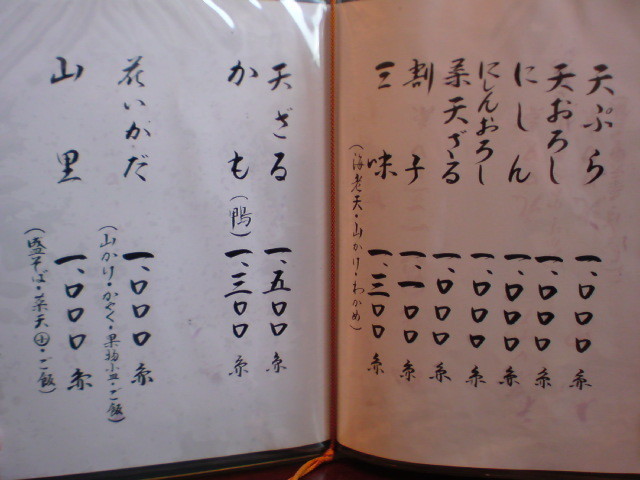 天ぷら 一、〇〇〇
天おろし 一、〇〇〇
にしん 一、〇〇〇
にしんおろし 一、〇〇〇
菜天ざる 一、〇〇〇
割子 一、一〇〇
三味 一、三〇〇
(海老天・山かけ・わかめ)
天ざる 一、五〇〇
かも(鴨) 一、三〇〇
花いかだ 一、〇〇〇
(山かけ・かやく・果物小皿・ご飯)
山里 一、〇〇〇
(盛そば・菜天・ご飯)